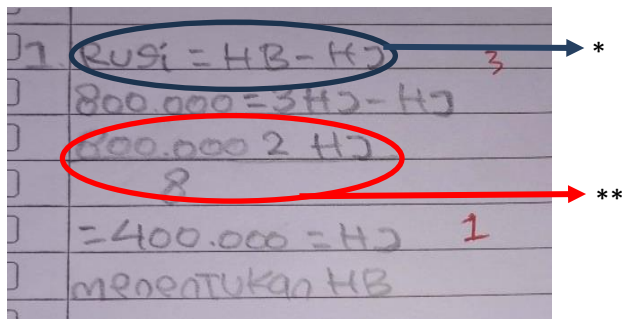 1. Rugi = HB - HJ 3 *
800.000 = 3HJ - HJ
800.000 2 HJ
8 **
= 400.000 = HJ 1
menenTUKan HB